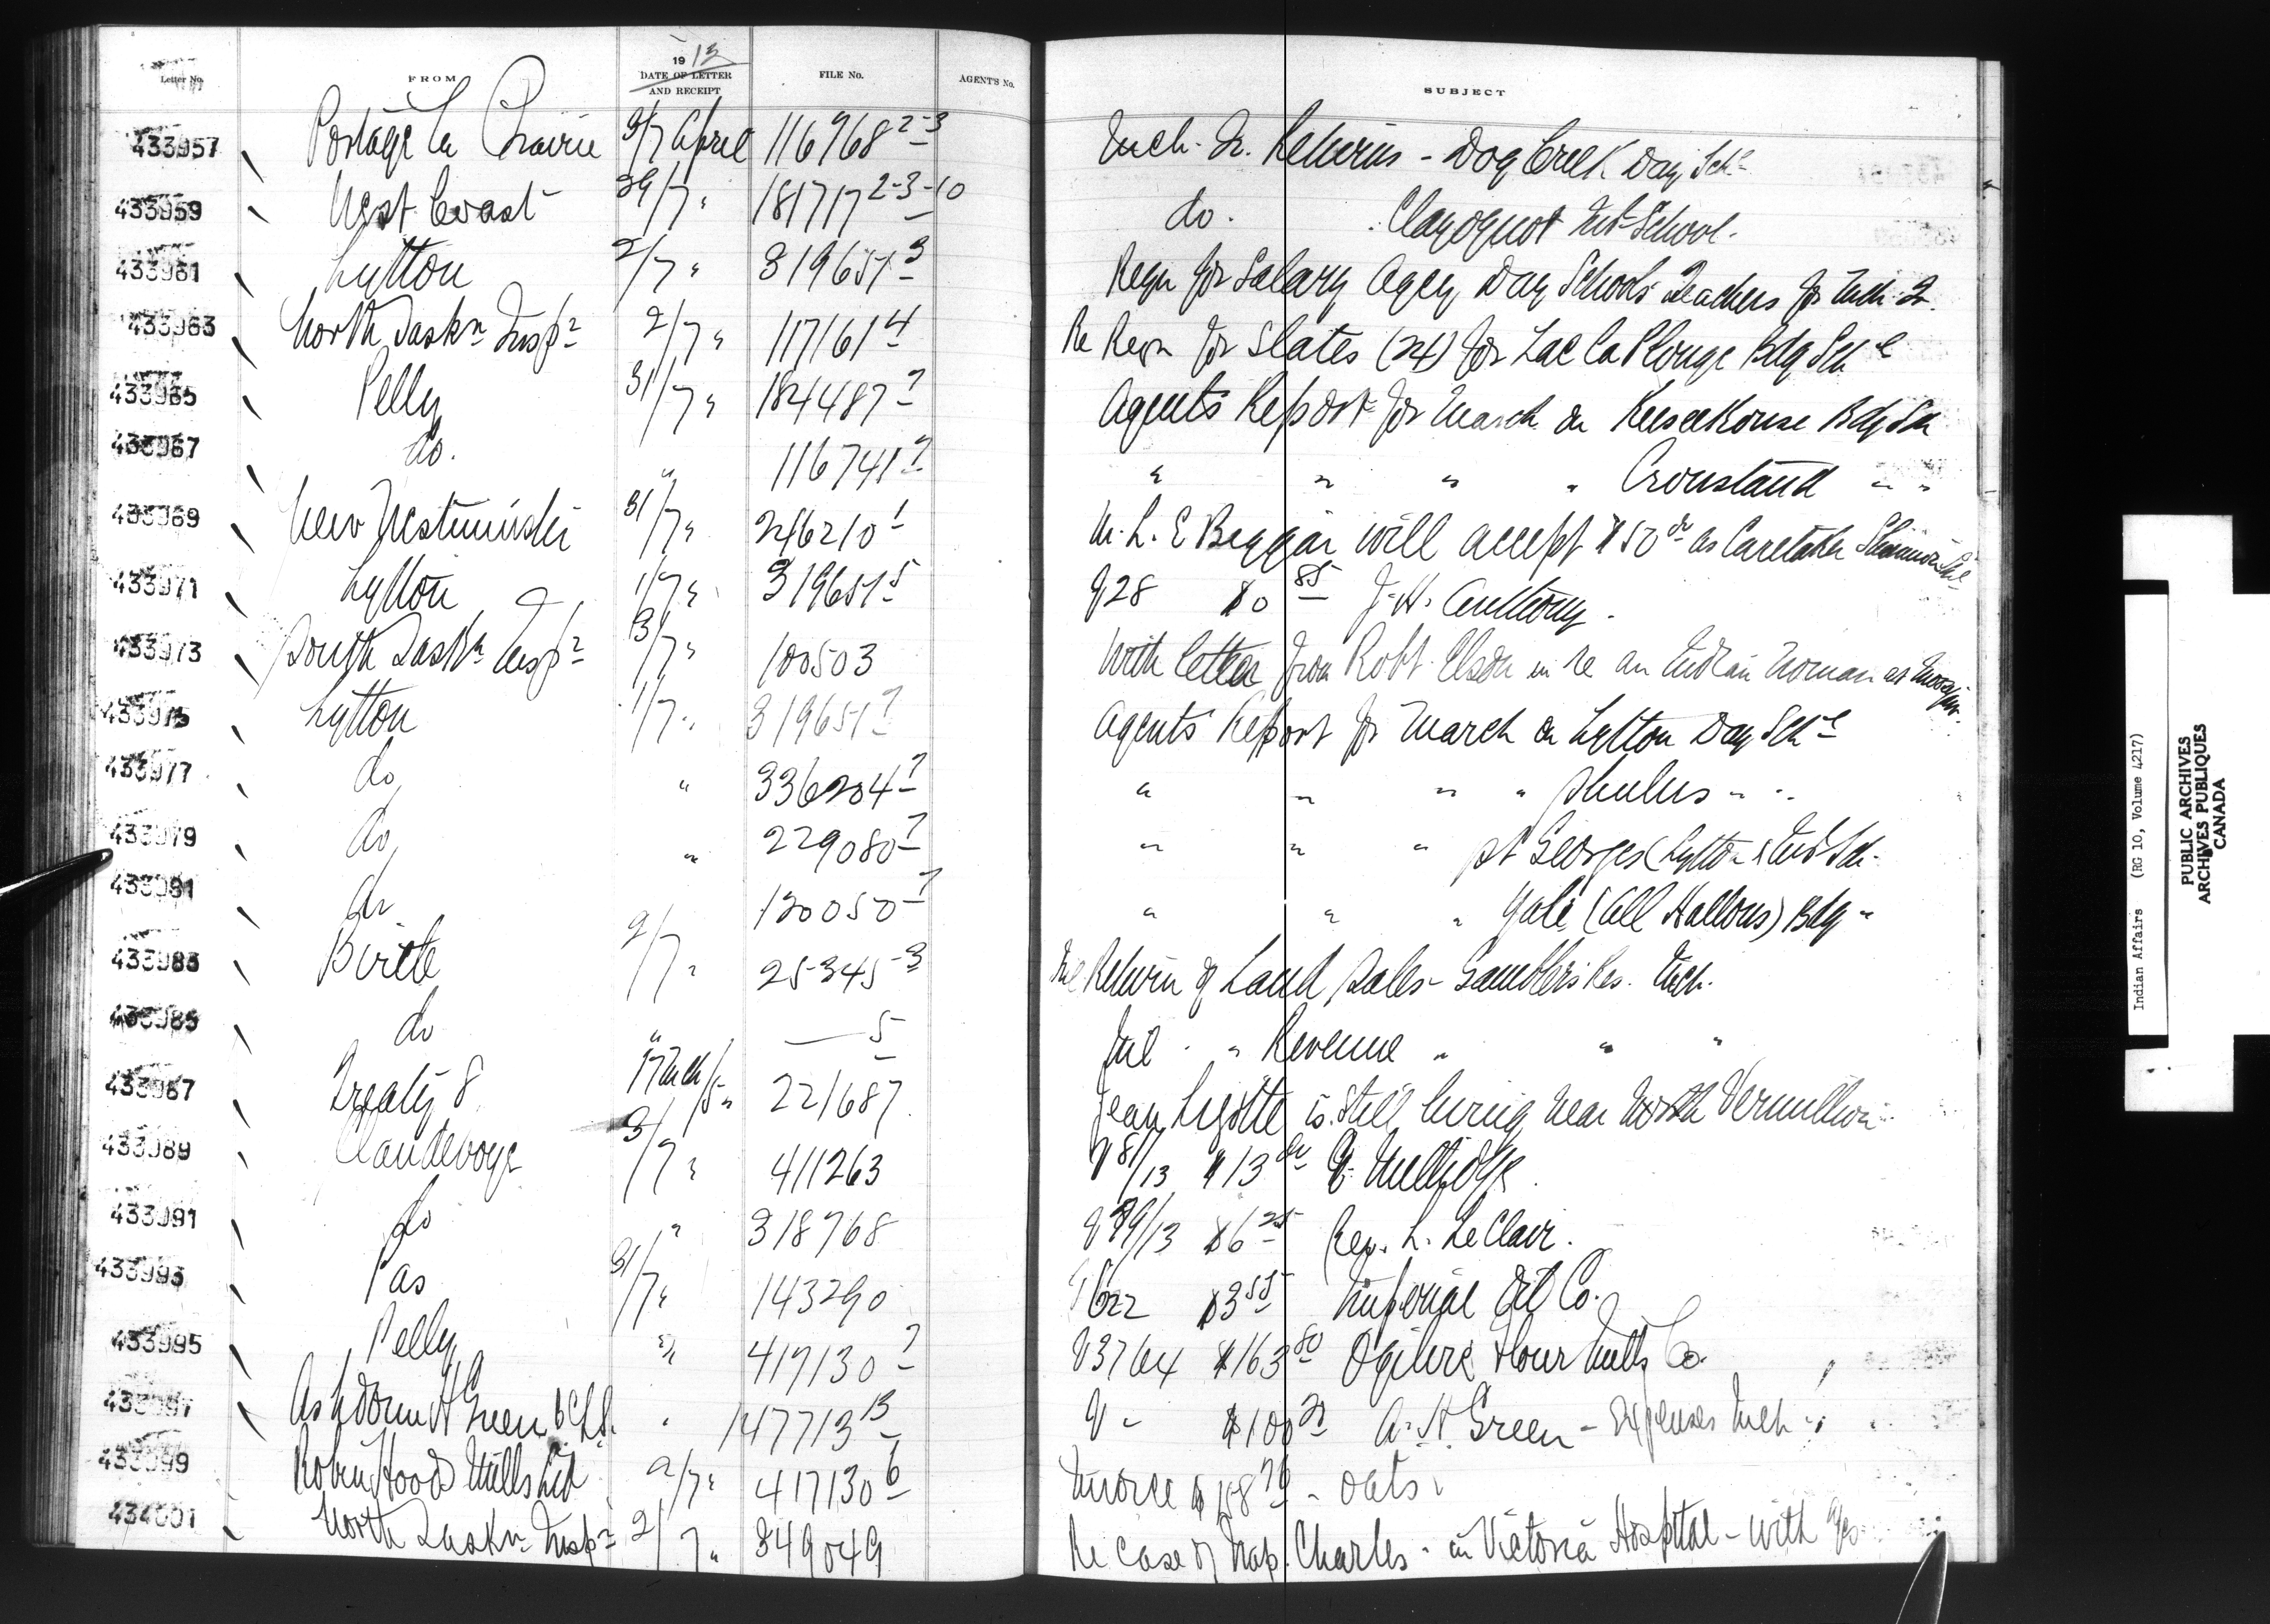 Letter No. FROM 1913 DATE OF LETTER AND RECEIPT FILE No. AGENT'S No. SUBJECT
433957 Portage la Prairie 3/7 April 116968 2-3 Mch. Qr. Returns - Dog Creek Day Schl
433959 West Coast 29/7 " 181717 2-3-10 do. Clayoquot Ind School.
433961 Lytton 2/7 " 319651 3 Reqn for Salary Agcy Day Schools Teachers for Mch. Qr.
433963 North Saskn Insp 2/7 " 117161 4 Re Reqn for Slates (24) for Lac La Plonge Bdg Schl
433965 Pelly 31/7 " 184487 7 Agents Report for March on Keeseekouse Bdg Sch
433967 do. " 116741 7 " " " " Crowstand " "
433969 New Westminster 31/7 " 246210 1 will accept $50 as Caretaker
433971 Lytton 1/7 " 319651 5 V28 $0 85 J. H. Anthony.
433973 South Saskn Insp 3/7 " 100503 With letter from Robt. in re an Indian Woman at Moosejaw.
433975 Lytton 1/7 " 319651 7 Agents Report for March on Lytton Day Schl
433977 do " 336204 7 " " " " Shulus " "
433979 do " 229080 7 " " " St Georges (Lytton) Ind Sch.
433981 do 120050 7 " " " Yale (All Hallows) Bdg "
433983 Birtle 2/7 " 25345 3 Nil Return of Land Sales - Gamblers Res. Mch.
433985 do " — 5 Nil " " Revenue " " "
433987 Treaty 8 17 Mch/5 " 221687 Jean is still living near North Vermillion
433989 Clandeboye 3/7 " 411263 V 81/13 $13
433991 do " 318768 /13 $6 25 Rev. L. LeClair.
433993 Pas 31/7 " 143290 V622 $3 55 Imperial Oil Co.
433995 Pelly " 417130 7 V3764 $163 80 Ogilvie Flour Mills Co.
433997 Ashdown H Green BCLS. " 147713 13 V - $100 A. H. Green - Expenses Mch
433999 Robin Hood Mills Ltd 2/7 " 417130 6 Invoice - oats
434001 North Saskn Insp 2/7 " 349049 Re case of Nap. Charles - in Victoria Hospital - with
Indian Affairs (RG 10, Volume 4217)
PUBLIC ARCHIVES
ARCHIVES PUBLIQUES
CANADA